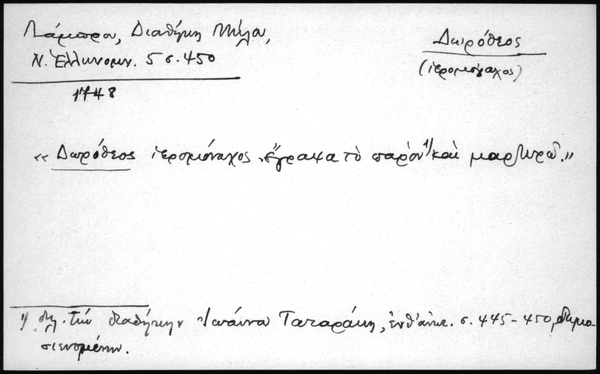 Λάμπρου, Διαθήκη Μήλα,
Ν. Ἑλληνομν. 5 σ. 450
1748
Δωρόθεος
(ἱερομόναχος)
« Δωρόθεος ἱερομόναχος ἔγραψα τὸ παρὸν 1/ καὶ μαρτυρῶ. »
1/ δηλ. τὴν διαθήκην Ἰωάννα Ταταράκη, ἔνθ' ἀνωτ. σ. 445-450, δημο-
σιευομένην.